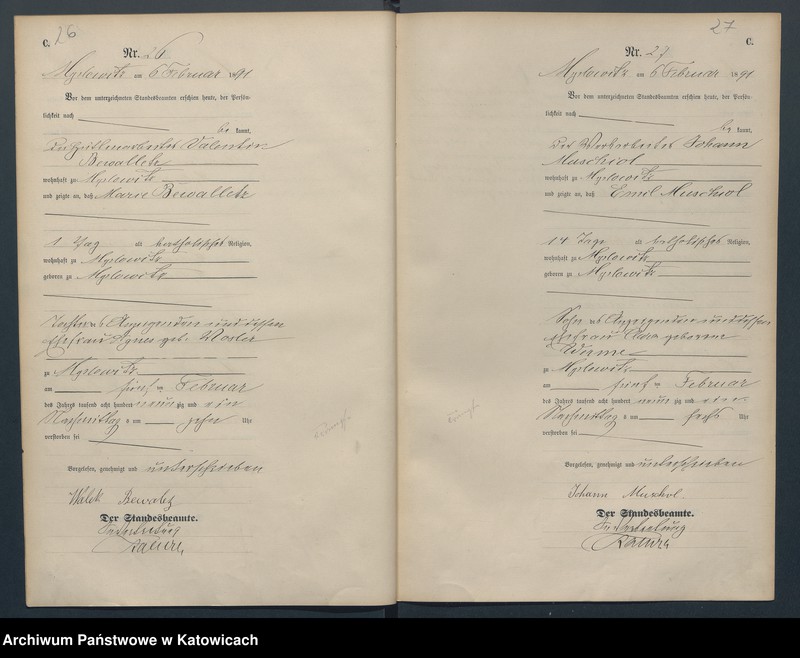 C. 26
Nr. 26
Myslowitz am 6 Februar 1891
Vor dem unterzeichneten Standesbeamten erschien heute, der Persön-
lichkeit nach
be kannt,
der Hüttenarbeiter Valentin
Bewalletz
wohnhaft zu Myslowitz
und zeigte an, daß Marie Bewalletz
1 Tag alt katholischer Religion,
wohnhaft zu Myslowitz
geboren zu Myslowitz
Tochter des Anzeigenden und dessen
Ehefrau Agnes geb.
zu Myslowitz
am fünf ten Februar
des Jahres tausend acht hundert neun zig und ein
Nachmittag s um zehn Uhr
verstorben sei
Vorgelesen, genehmigt und unterschrieben
Bewaletz
Der Standesbeamte.
In Vertretung
27
C.
Nr. 27
Myslowitz am 6 Februar 1891
Vor dem unterzeichneten Standesbeamten erschien heute, der Persön-
lichkeit nach
be kannt,
der Johann
Muschiol
wohnhaft zu Myslowitz
und zeigte an, daß Emil Muschiol
14 Tage alt katholischer Religion,
wohnhaft zu Myslowitz
geboren zu Myslowitz
Sohn des Anzeigenden und dessen
Ehefrau geborene
zu Myslowitz
am fünf ten Februar
des Jahres tausend acht hundert neun zig und ein
Nachmittag s um sechs Uhr
verstorben sei
Vorgelesen, genehmigt und unterschrieben
Johann Muschol
Der Standesbeamte.
In Vertretung
Archiwum Państwowe w Katowicach